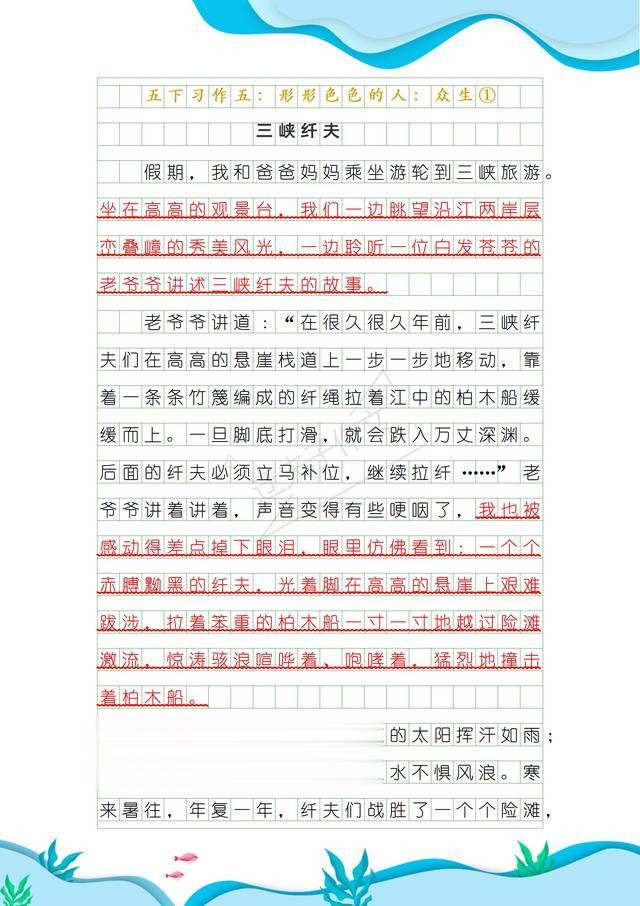 五下习作五：形形色色的人：众生①
三峡纤夫
假期，我和爸爸妈妈乘坐游轮到三峡旅游。
坐在高高的观景台，我们一边眺望沿江两岸层
峦叠嶂的秀美风光，一边聆听一位白发苍苍的
老爷爷讲述三峡纤夫的故事。
老爷爷讲道：“在很久很久年前，三峡纤
夫们在高高的悬崖栈道上一步一步地移动，靠
着一条条竹篾编成的纤绳拉着江中的柏木船缓
缓而上。一旦脚底打滑，就会跌入万丈深渊。
后面的纤夫必须立马补位，继续拉纤……”老
爷爷讲着讲着，声音变得有些哽咽了，我也被
感动得差点掉下眼泪，眼里仿佛看到：一个个
赤膊黝黑的纤夫，光着脚在高高的悬崖上艰难
跋涉，拉着笨重的柏木船一寸一寸地越过险滩
激流，惊涛骇浪喧哗着、咆哮着，猛烈地撞击
着柏木船。
的太阳挥汗如雨；
水不惧风浪。寒
来暑往，年复一年，纤夫们战胜了一个个险滩，